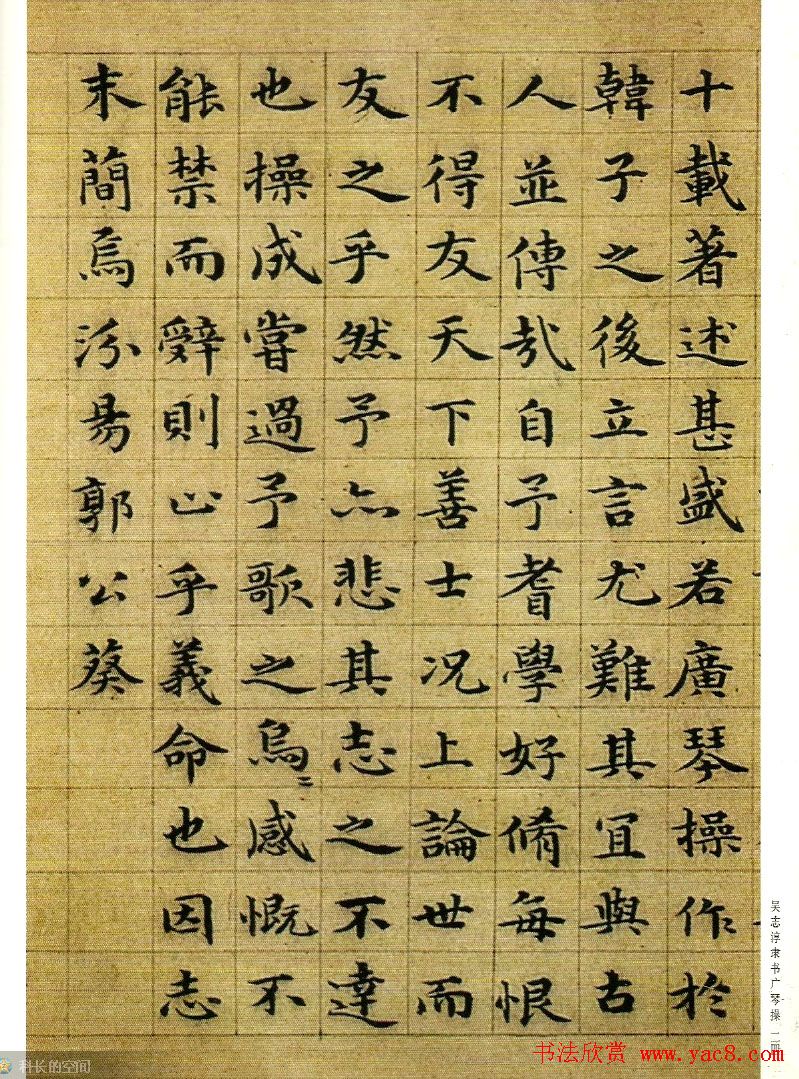 十載著述甚盛若廣琴操作於
韓子之後立言尤難其冝與古
人並傳哉自予耆學好脩每恨
不得友天下善士况上論世而
友之乎然予亦悲其志之不達
也操成嘗過予歌之烏〻感慨不
能禁而辤則止乎義命也因志
末簡焉汾昜郭公葵
吴志淳隶书广琴操
书法欣赏 www.yac8.com
科长的空间